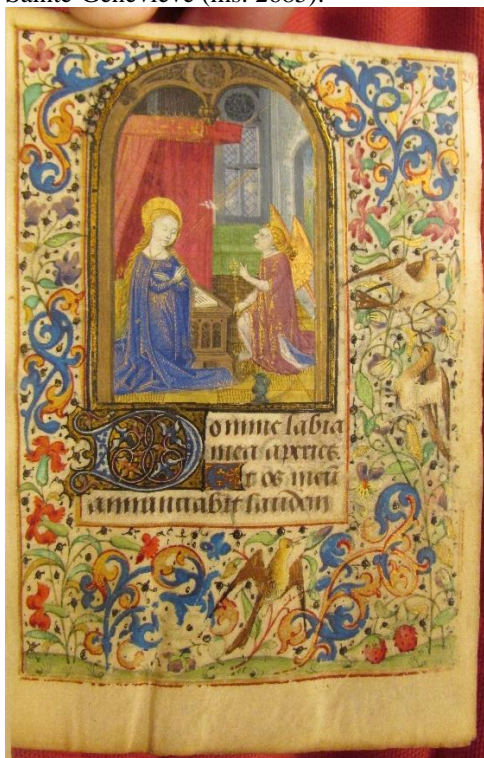 Sainte-Geneviève (ms.
Domine labia
mea aperies.
Et os meū
annunciabit laudem